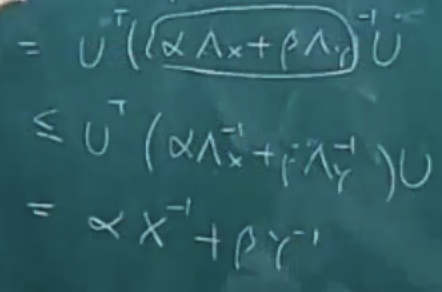 = U^T((αΛx + βΛy)^-1 U
≤ U^T (αΛx^-1 + βΛy^-1 )U
= αX^-1 + βY^-1